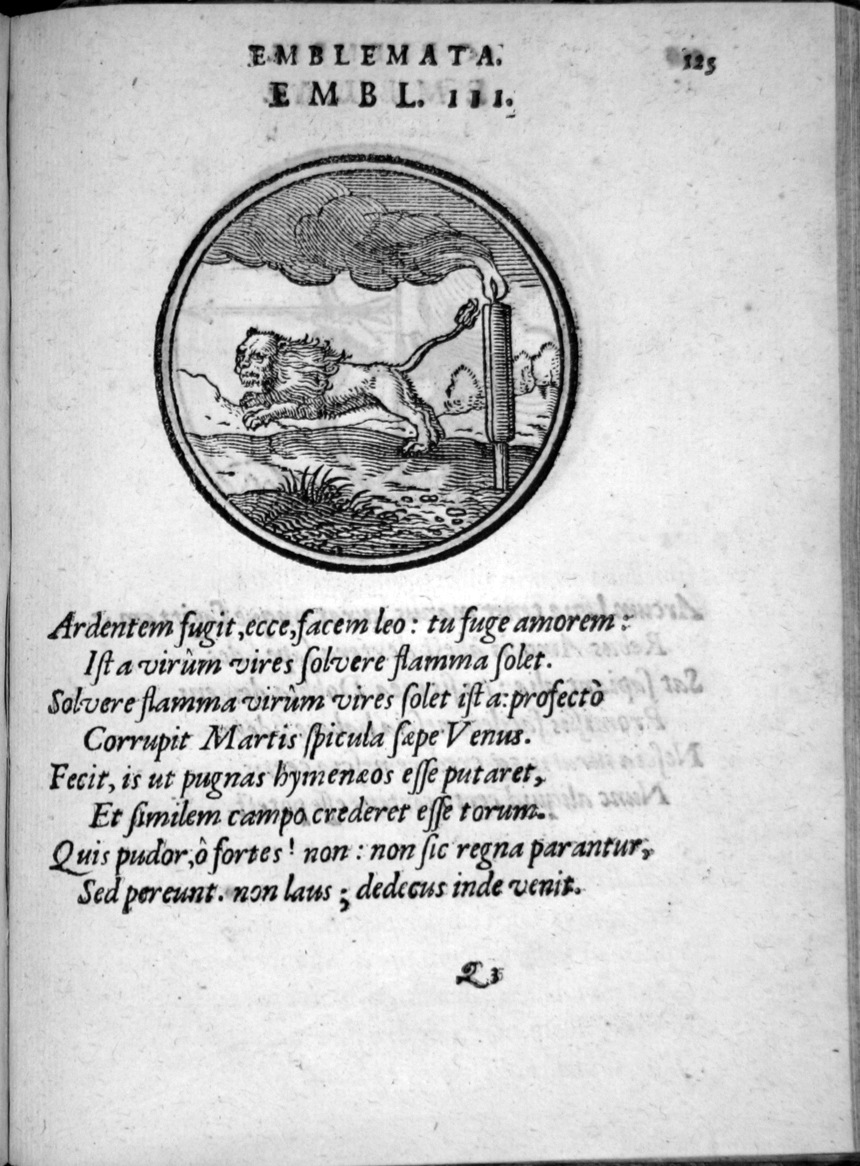 EMBLEMATA.
125
EMBL. III.
Ardentem fugit, ecce, facem leo: tu fuge amorem:
Iſta virûm vires ſolvere flamma ſolet.
Solvere flamma virûm vires ſolet iſta: profectò
Corrupit Martis ſpicula ſæpe Venus.
Fecit, is ut pugnas hymenæos eſſe putaret,
Et ſimilem campo crederet eſſe torum.
Quis pudor, ò fortes! non: non ſic regna parantur,
Sed pereunt. non laus; dedecus inde venit.
Q3